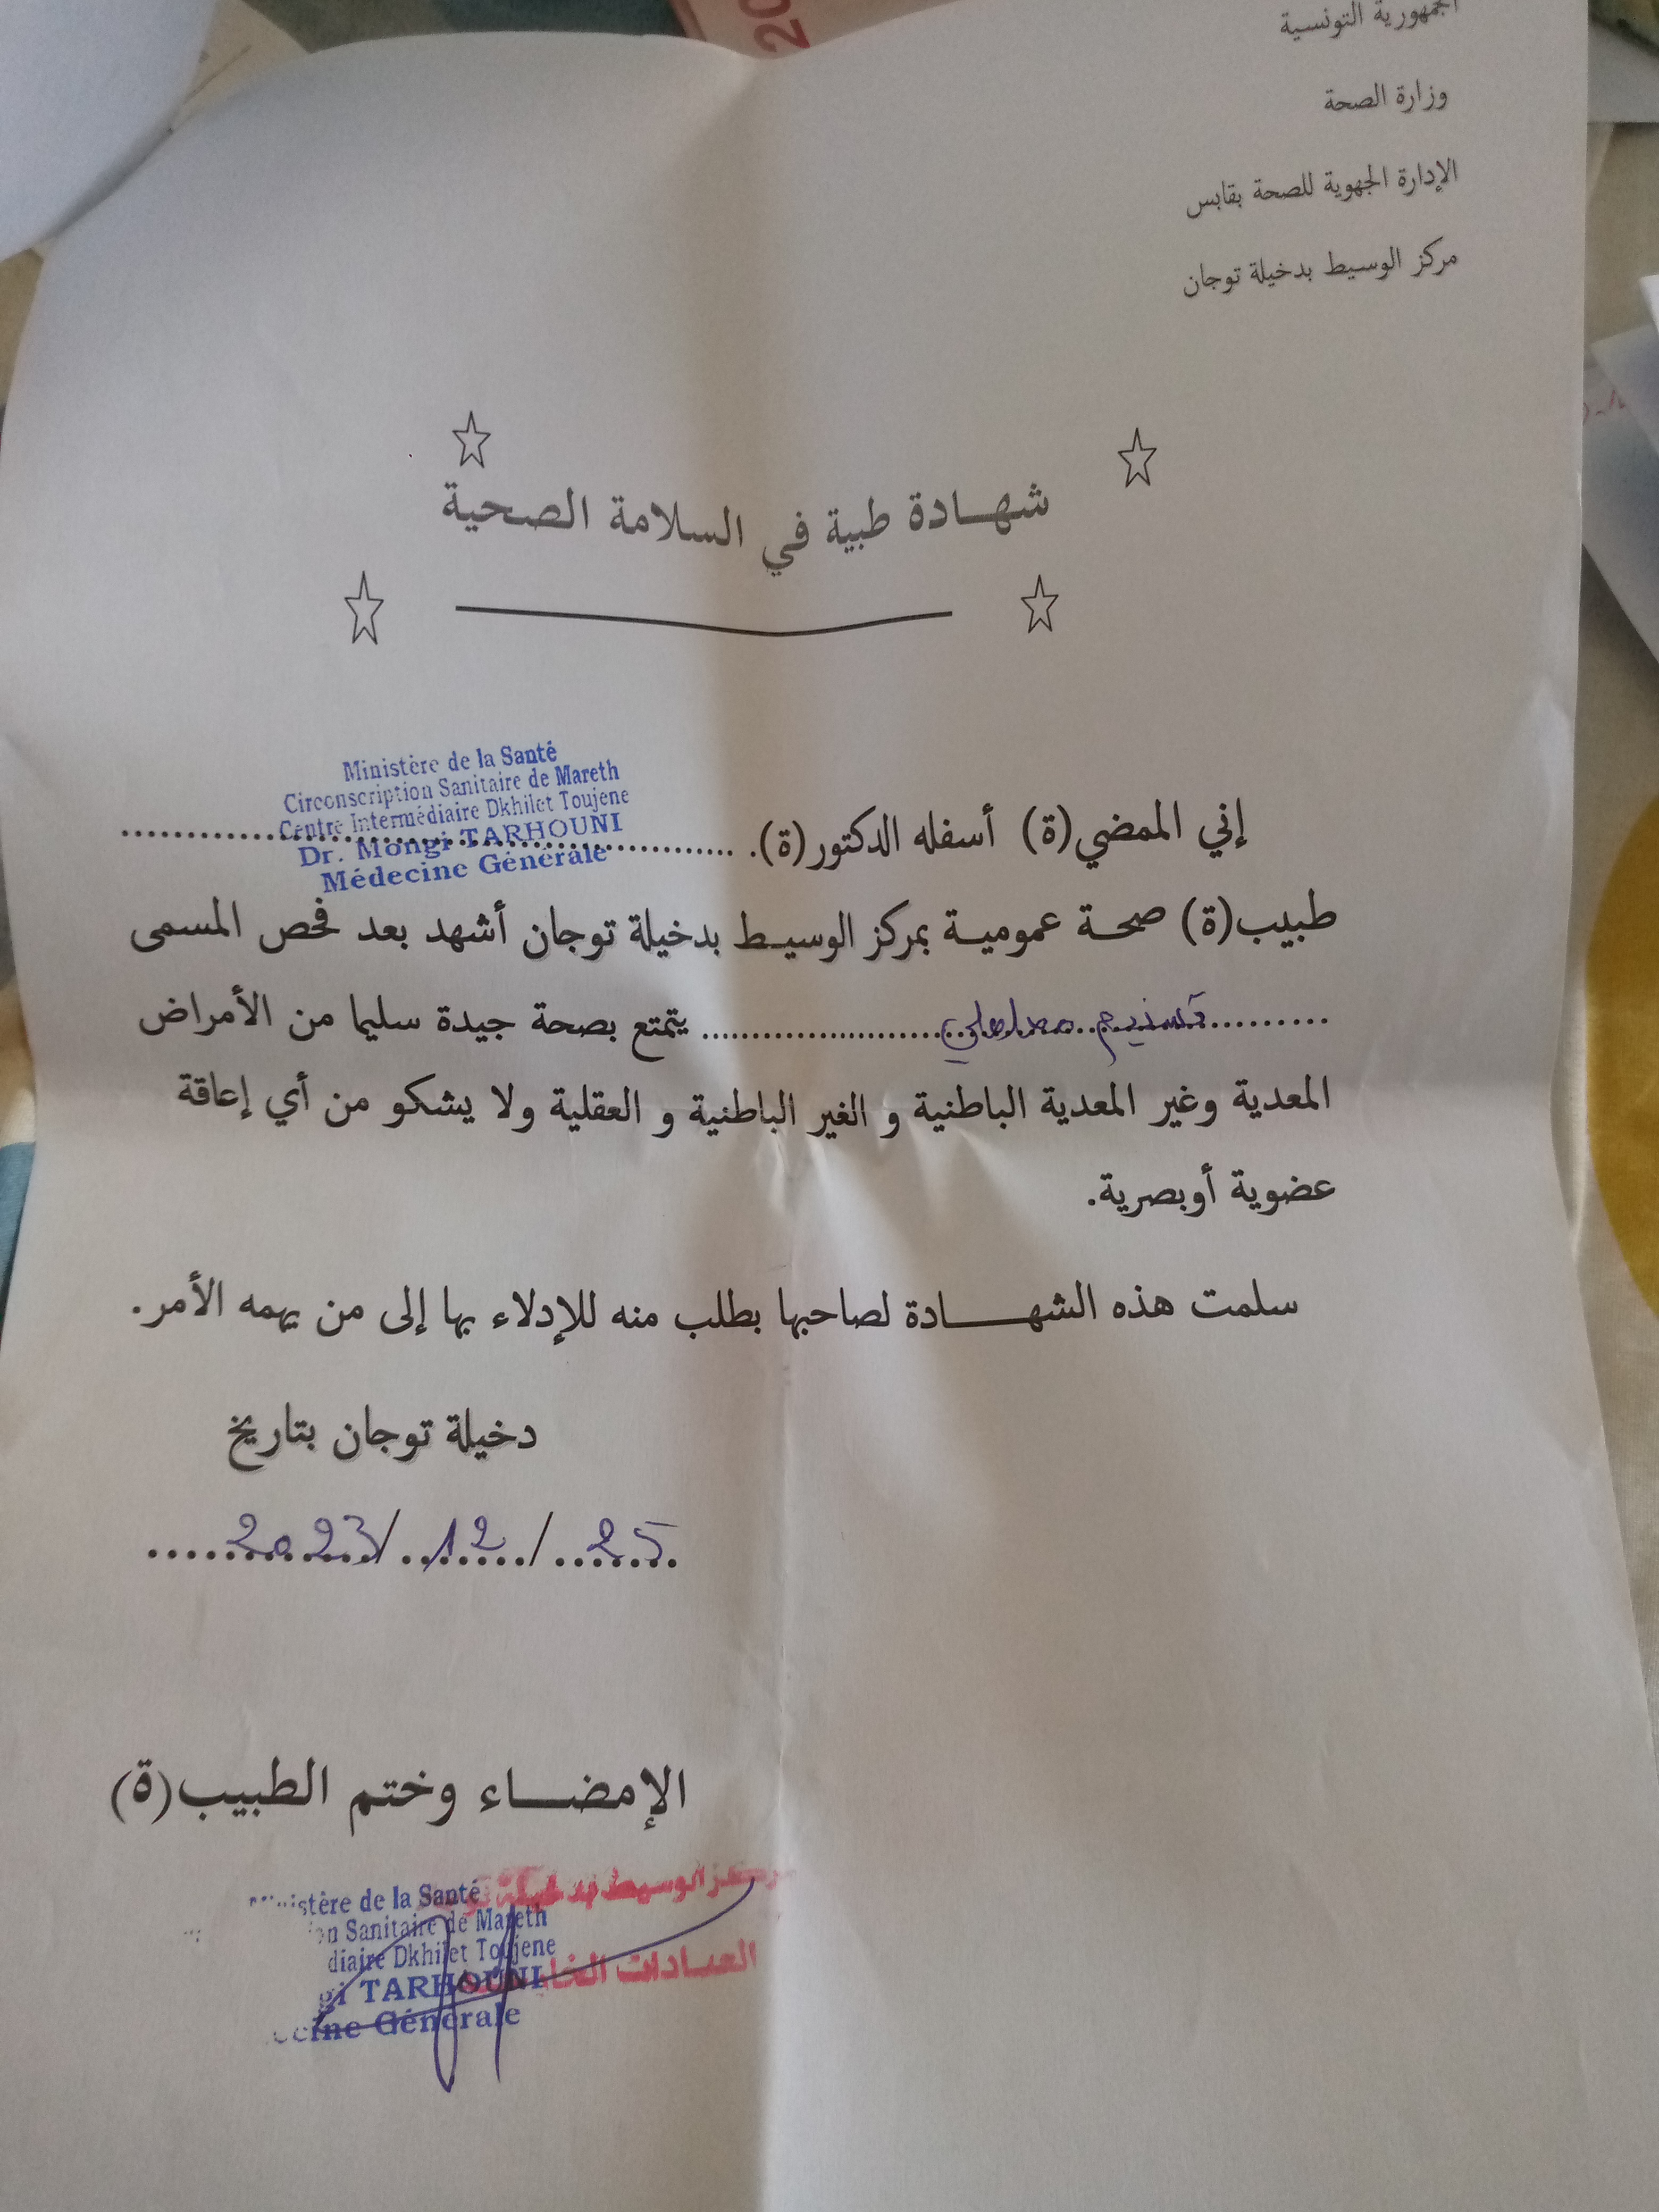 الجمهورية التونسية
وزارة الصحة
الإدارة الجهوية للصحة بقابس
مركز الوسيط بدخيلة توجان
شهــادة طبية في السلامة الصحية
Ministère de la Santé
Circonscription Sanitaire de Mareth
Centre Intermédiaire Dkhilet Toujene
Dr. Mongi TARHOUNI
Médecine Générale
إني الممضي(ة) أسفله الدكتور(ة).
طبيب(ة) صحة عمومية بمركز الوسيط بدخيلة توجان أشهد بعد فحص المسمى
تسنيم يتمتع بصحة جيدة سليما من الأمراض
المعدية وغير المعدية الباطنية و الغير الباطنية و العقلية ولا يشكو من أي إعاقة
عضوية أوبصرية.
سلمت هذه الشهــــادة لصاحبها بطلب منه للإدلاء بها إلى من يهمه الأمر.
دخيلة توجان بتاريخ
25/12/2023
الإمضــاء وختم الطبيب(ة)
مركز الوسيط بدخيلة
العيادات
istère de la Santé
on Sanitaire de Mareth
diaire Dkhilet Toujene
gi TARHOUNI
cine Générale
20